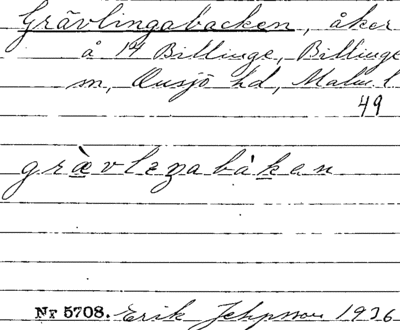 Grävlingabacken, åker
å 14 Billinge, Billinge
sn, Onsjö hd, Malm. l.
49
grὰvleŋabákan
Nr 5708. Erik Jeppsson 1936